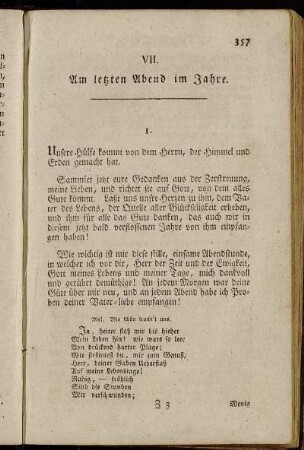 357
VII.
Am letzten Abend im Jahre.
I.
Unsere Hülfe kommt von dem Herrn, der Himmel und
Erden gemacht hat.
Sammlet jetzt eure Gedanken aus der Zerstreuung,
meine Lieben, und richtet sie auf Gott, von dem alles
Gute kömmt. Laßt uns unsre Herzen zu ihm, dem Va-
ter des Lebens, der Quelle aller Glückseligkeit erheben,
und ihm für alle das Gute danken, das auch wir in
diesem jetzt bald verflossenen Jahre von ihm empfan-
gen haben!
Wie wichtig ist mir diese stille, einsame Abendstunde,
in welcher ich vor dir, Herr der Zeit und der Ewigkeit,
Gott meines Lebens und meiner Tage, mich dankvoll
und gerührt demüthige! An jedem Morgen war deine
Güte über mir neu, und an jedem Abend habe ich Pro-
ben deiner Vater-liebe empfangen!
Mel.
Ja, heiter floß mir bis hieher
Mein Leben hin! wie wars so leer
Von drückend harter Plage;
Wie strömtest du, mir zum Genuß,
Herr, deiner Gaben Ueberfluß
Auf meine Lebenstage!
Ruhig, — fröhlich
Sind die Stunden
Mir verschwunden;
Z 3
Wenig